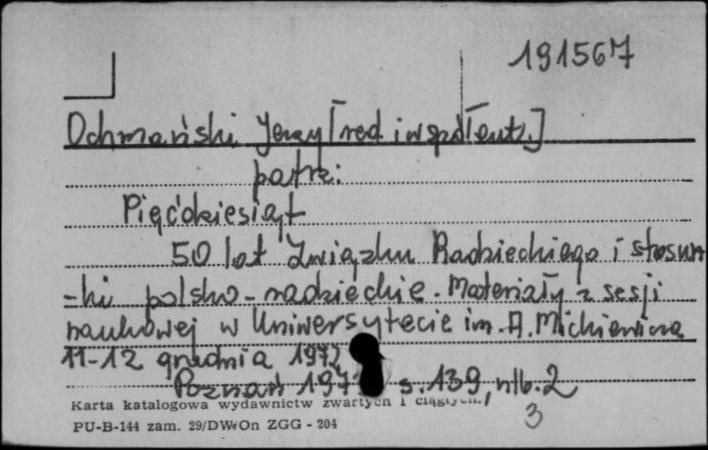 191567
Ochmański Jerzy [red i współaut.]
patrz:
Pięćdziesiąt
50 lat Związku Radzieckiego i stosun-
-ki polsko-radzieckie. Materiały z sesji
naukowej w Uniwersytecie im. A. Mickiewicza
11-12 grudnia 1972
Poznań s. 139, nlb. 2
3
Karta katalogowa wydawnictw zwartych i ciągłych.
PU-B-144 zam. 29/DWOn ZGG - 204